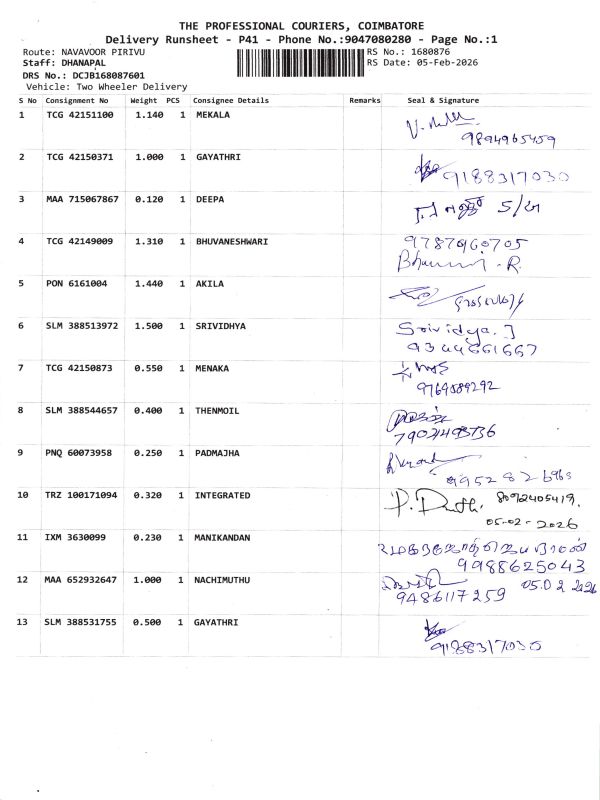 THE PROFESSIONAL COURIERS, COIMBATORE
Delivery Runsheet - P41 - Phone No.:9047080280 - Page No.:1
Route: NAVAVOOR PIRIVU RS No.: 1680876
Staff: DHANAPAL RS Date: 05-Feb-2026
DRS No.: DCJB168087601
Vehicle: Two Wheeler Delivery
S No Consignment No Weight PCS Consignee Details Remarks Seal & Signature
1 TCG 42151100 1.140 1 MEKALA
9894965459
2 TCG 42150371 1.000 1 GAYATHRI
9188317030
3 MAA 715067867 0.120 1 DEEPA
4 TCG 42149009 1.310 1 BHUVANESHWARI 9787960705
5 PON 6161004 1.440 1 AKILA
6 SLM 388513972 1.500 1 SRIVIDHYA Srividya. J
9344661667
7 TCG 42150873 0.550 1 MENAKA
9769889292
8 SLM 388544657 0.400 1 THENMOIL
9 PNQ 60073958 0.250 1 PADMAJHA
10 TRZ 100171094 0.320 1 INTEGRATED 8092405419.
05-02-2026
11 IXM 3630099 0.230 1 MANIKANDAN
9988625043
12 MAA 652932647 1.000 1 NACHIMUTHU 05.02.2026
9486117259
13 SLM 388531755 0.500 1 GAYATHRI
9188317030